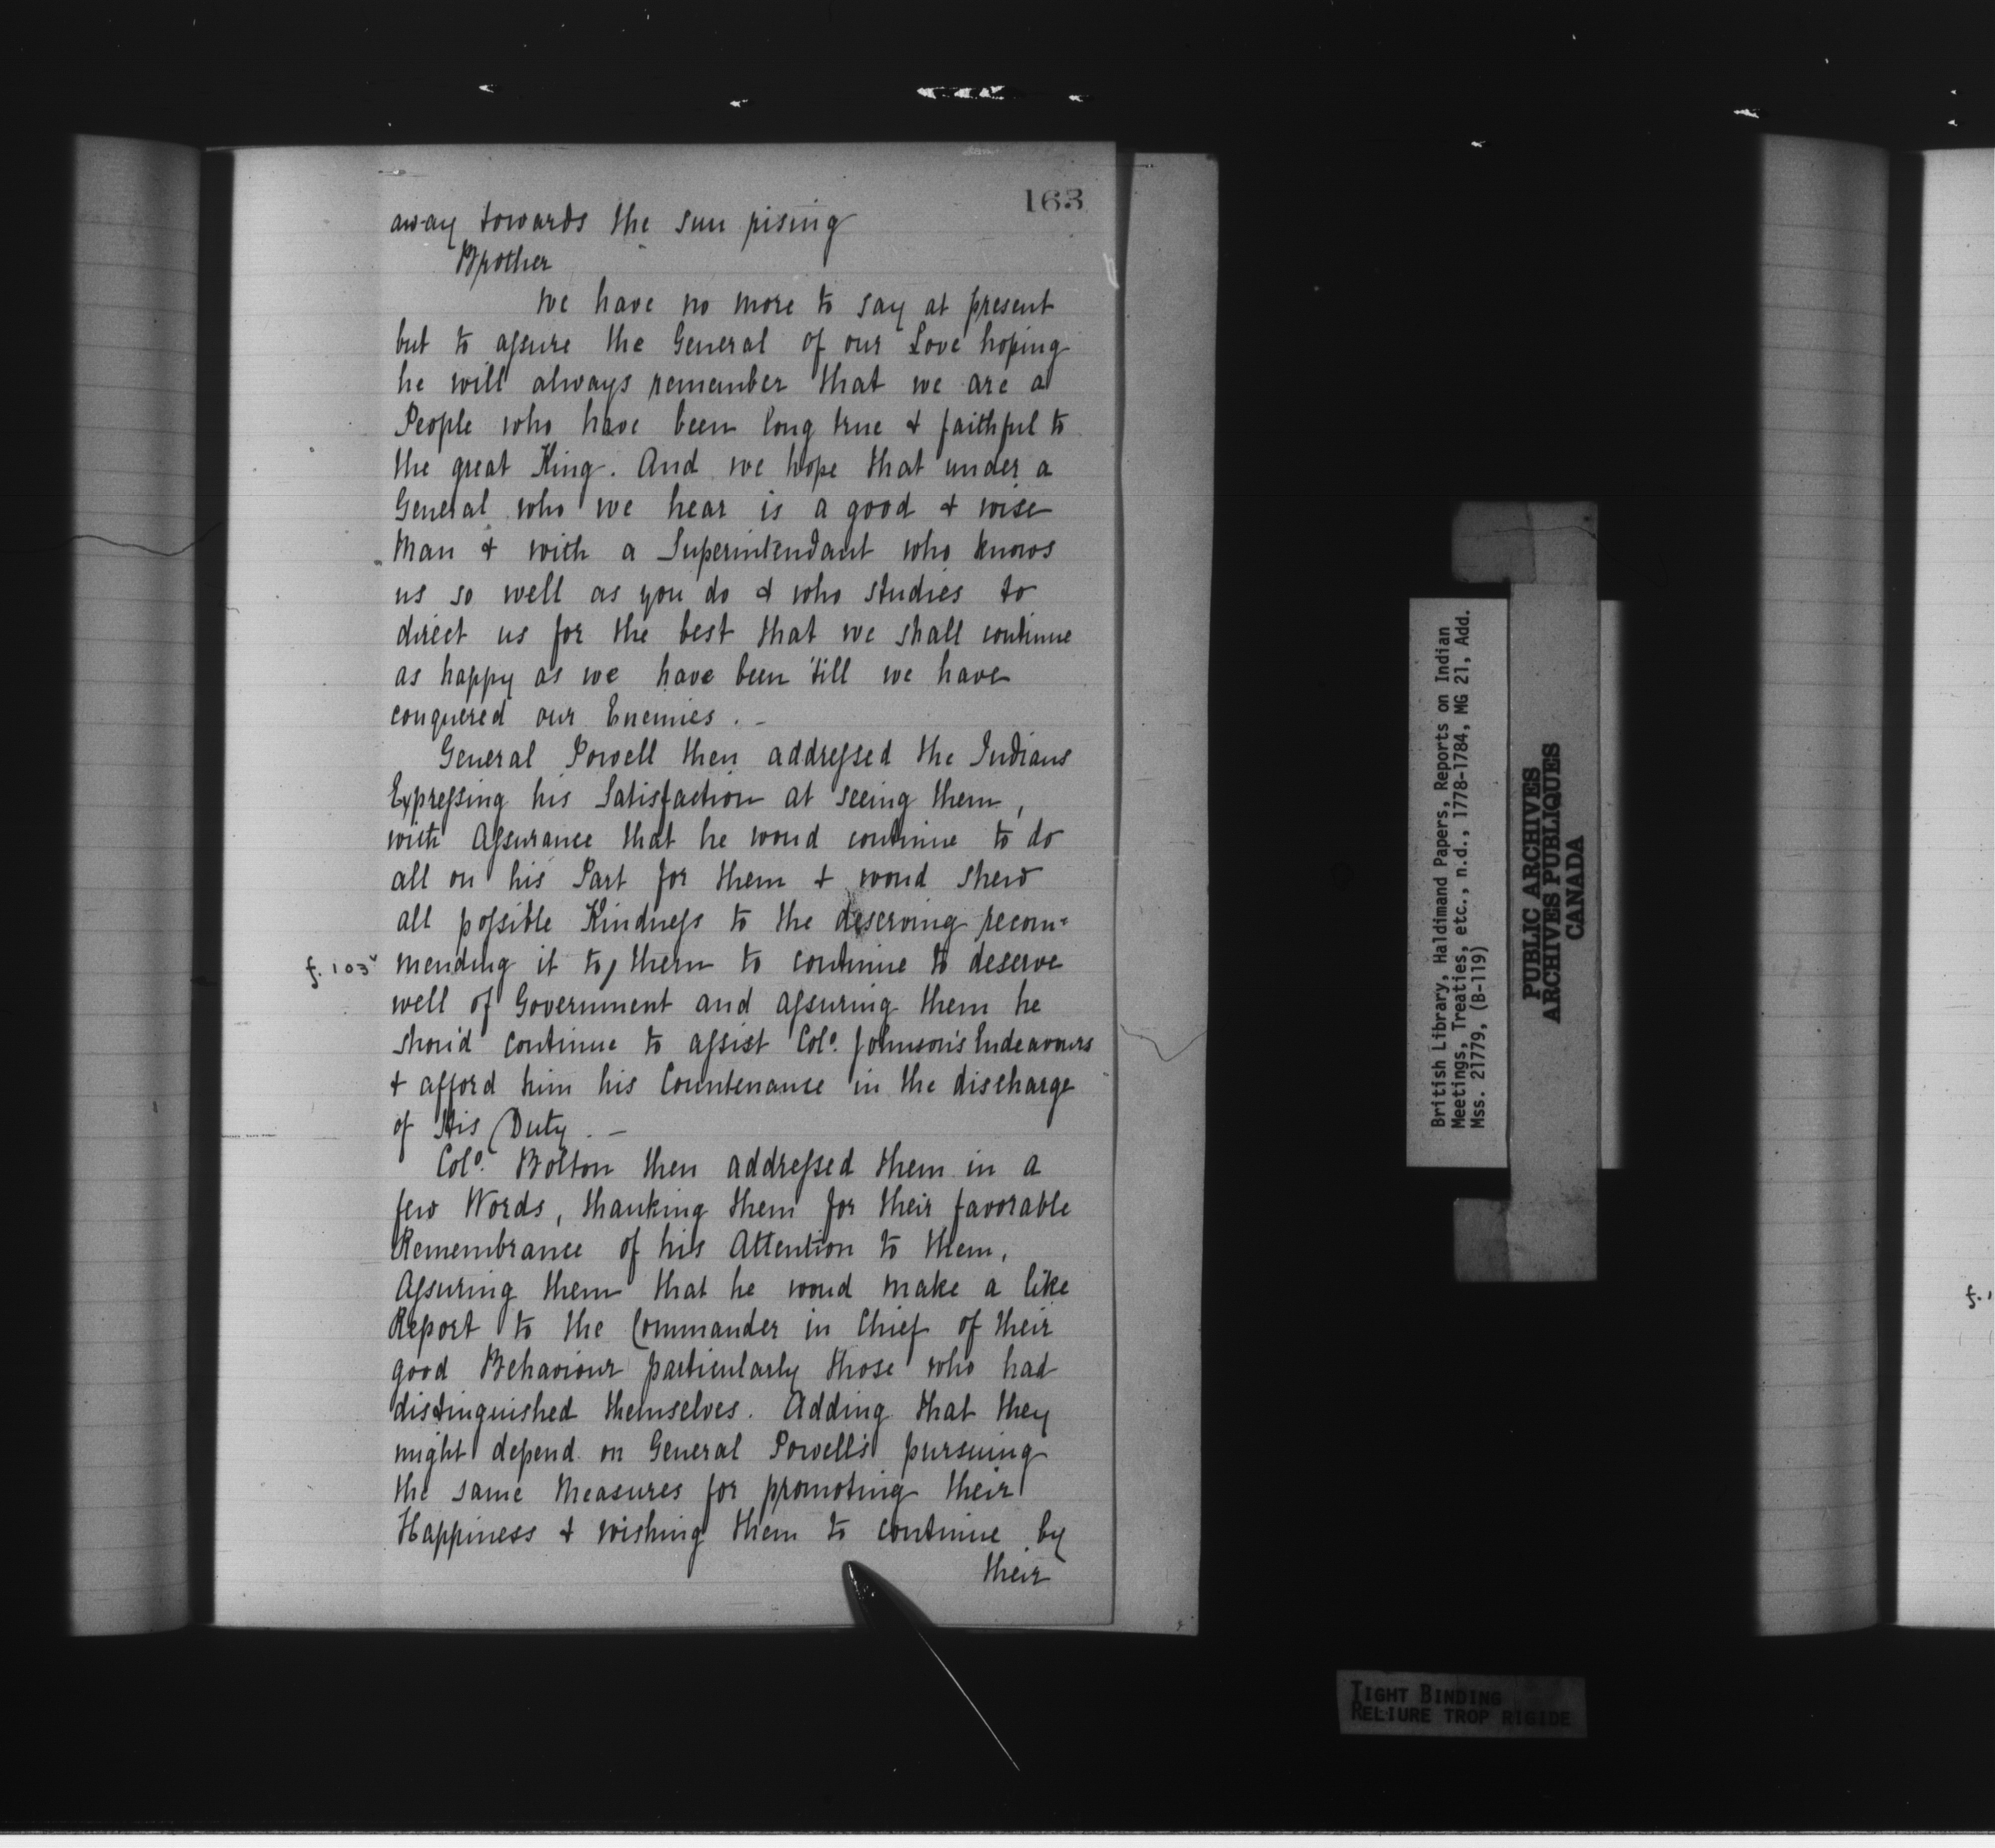 163
away towards the sun rising
Brother
we have no more to say at present
but to assure the General of our Love hoping
he will always remember that we are a
People who have been long true & faithful to
the great King. And we hope that under a
General who we hear is a good & wise
Man & with a Superintendant who knows
us so well as you do & who studies to
direct us for the best that we shall continue
as happy as we have been 'till we have
conquered our Enemies. -
General Powell then addressed the Indians
Expressing his Satisfaction at seeing them,
with Assurance that he woud continue to do
all on his Part for them & woud shew
all possible Kindness to the deserving recom=
f. 103v mending it to, them to continue to deserve
well of Government and assuring them he
shou'd continue to assist Colo. Johnson's Endeavours
& afford him his Countenance in the discharge
of His Duty. -
Colo. Bolton then addressed them in a
few Words, thanking them for their favorable
Remembrance of his Attention to them,
Assuring them that he woud make a like
Report to the Commander in Chief of their
good Behaviour particularly those who had
distinguished themselves. Adding that they
might depend on General Powell's pursuing
the same Measures for promoting their
Happiness & wishing them to continue by
their
British Library, Haldimand Papers, Reports on Indian
Meetings, Treaties, etc., n.d., 1778-1784, MG 21, Add.
Mss. 21779, (B-119)
PUBLIC ARCHIVES
ARCHIVES PUBLIQUES
CANADA
TIGHT BINDING
RELIURE TROP RIGIDE